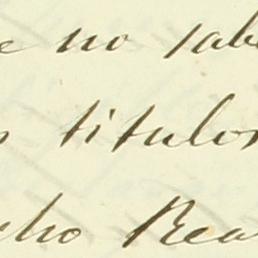 e no sabe
titulos
cho Rea